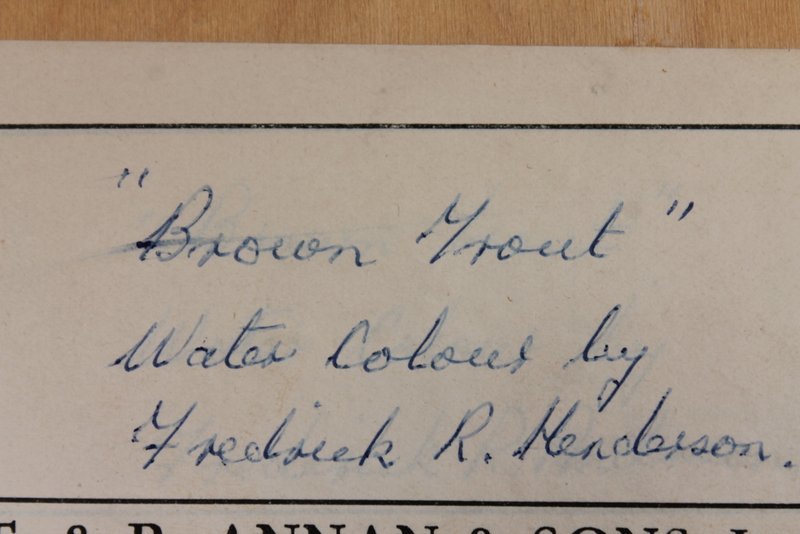 "Brown Trout"
Water Colour by
Fredrick R. Henderson.
T. & R. ANNAN & SONS, L